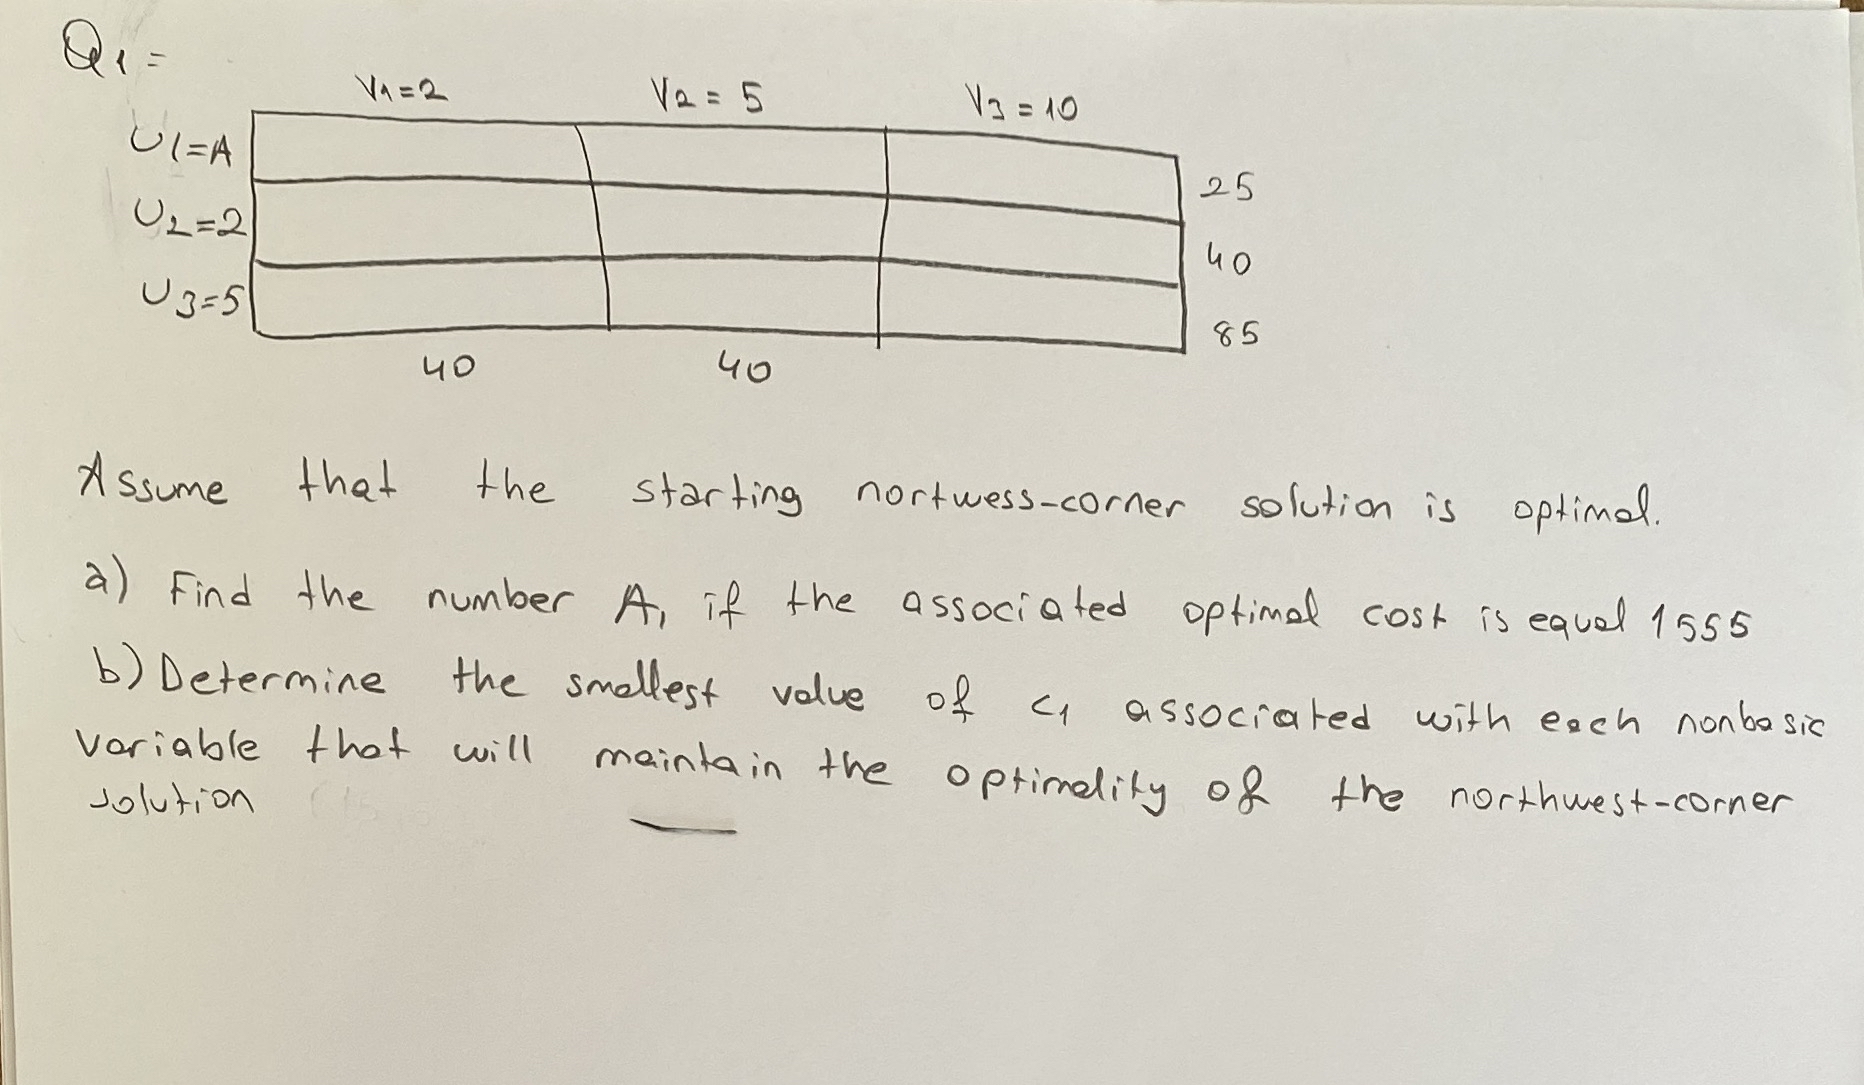 Q1=
V1=2 V2=5 V3=10
U1=A 25
U2=2 40
U3=5 85
40 40
Assume that the starting nortwess-corner solution is optimal.
a) Find the number A, if the associated optimal cost is equal 1555
b) Determine the smallest value of c1 associated with each nonbasic
variable that will maintain the optimality of the northwest-corner
solution